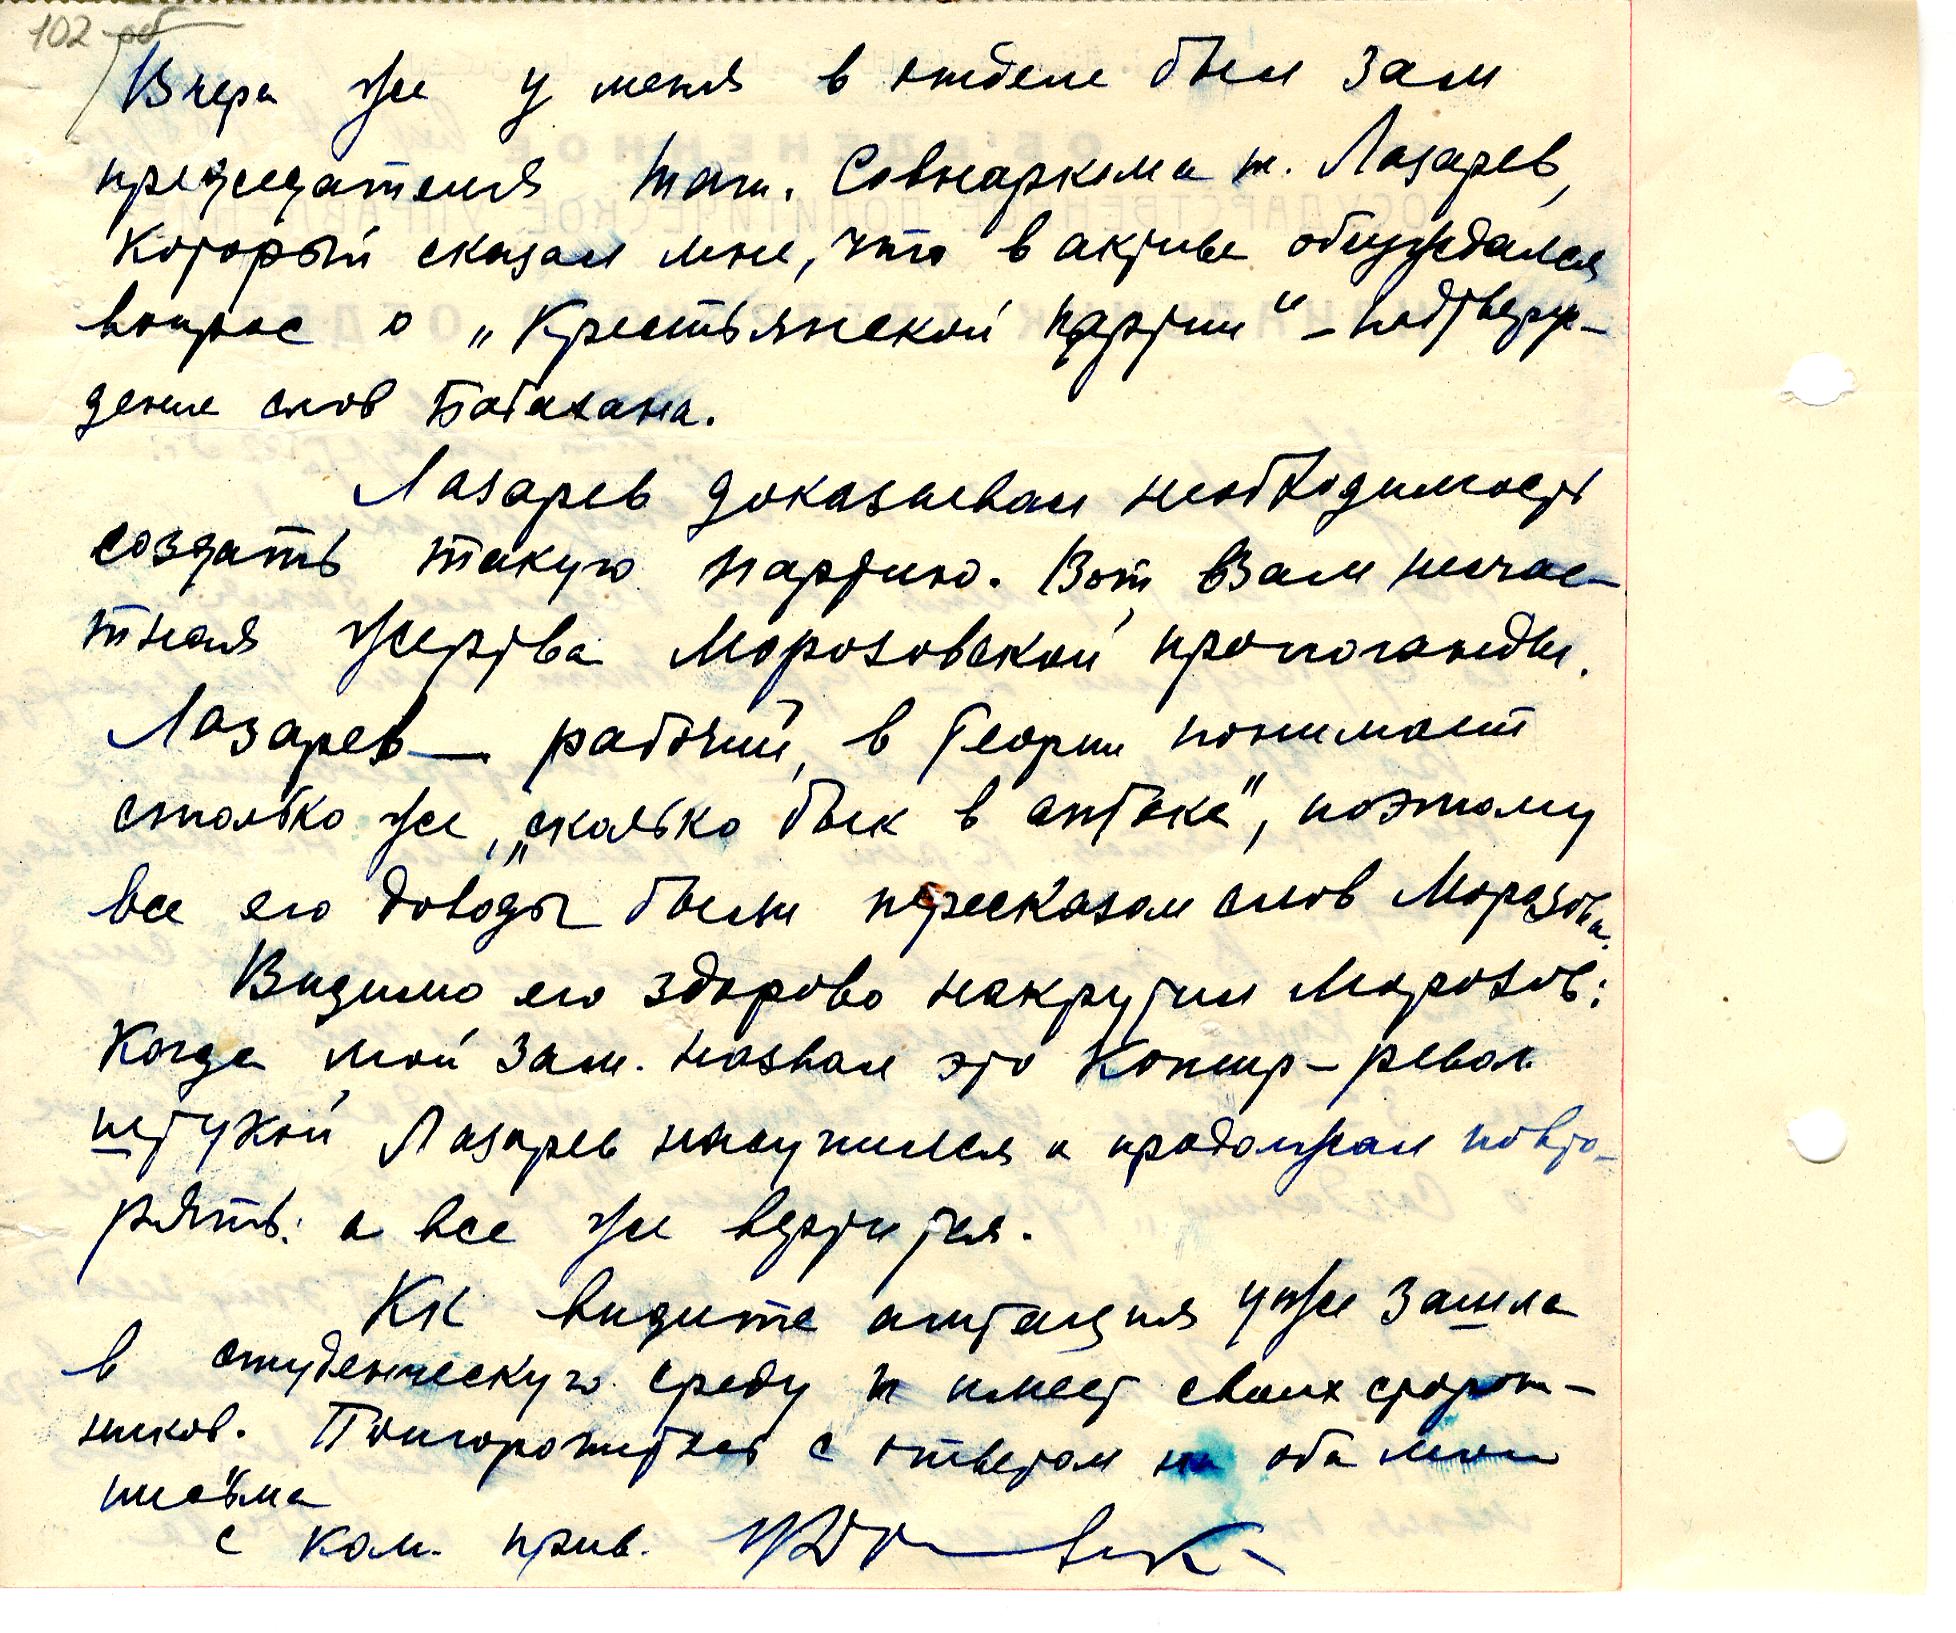 102 об
Вчера же у меня в отделе был зам
председателя Тат. Совнаркома т. Лазарев,
который сказал мне, что в активе обсуждался
вопрос о „Крестьянской партии“ – подтверж-
дение слов Бабахана.
Лазарев доказывал необходимость
создать такую партию. Вот Вам несчас-
тная жертва Морозовской пропоганды.
Лазарев – рабочий, в теории понимает
столько же, „сколько бык в аптеке“, поэтому
все его доводы были пересказом слов Морозова.
Видимо его здорово накрутил Морозов:
Когда мой зам. назвал это контр-револ.
штукой Лазарев насупился и продолжал повто-
рять: а все же вертится.
Кк видите агитация уже зашла
в студенческую среду и имеет своих сторон-
ников. Поторопитесь с ответом на оба мои
письма
с ком. прив.